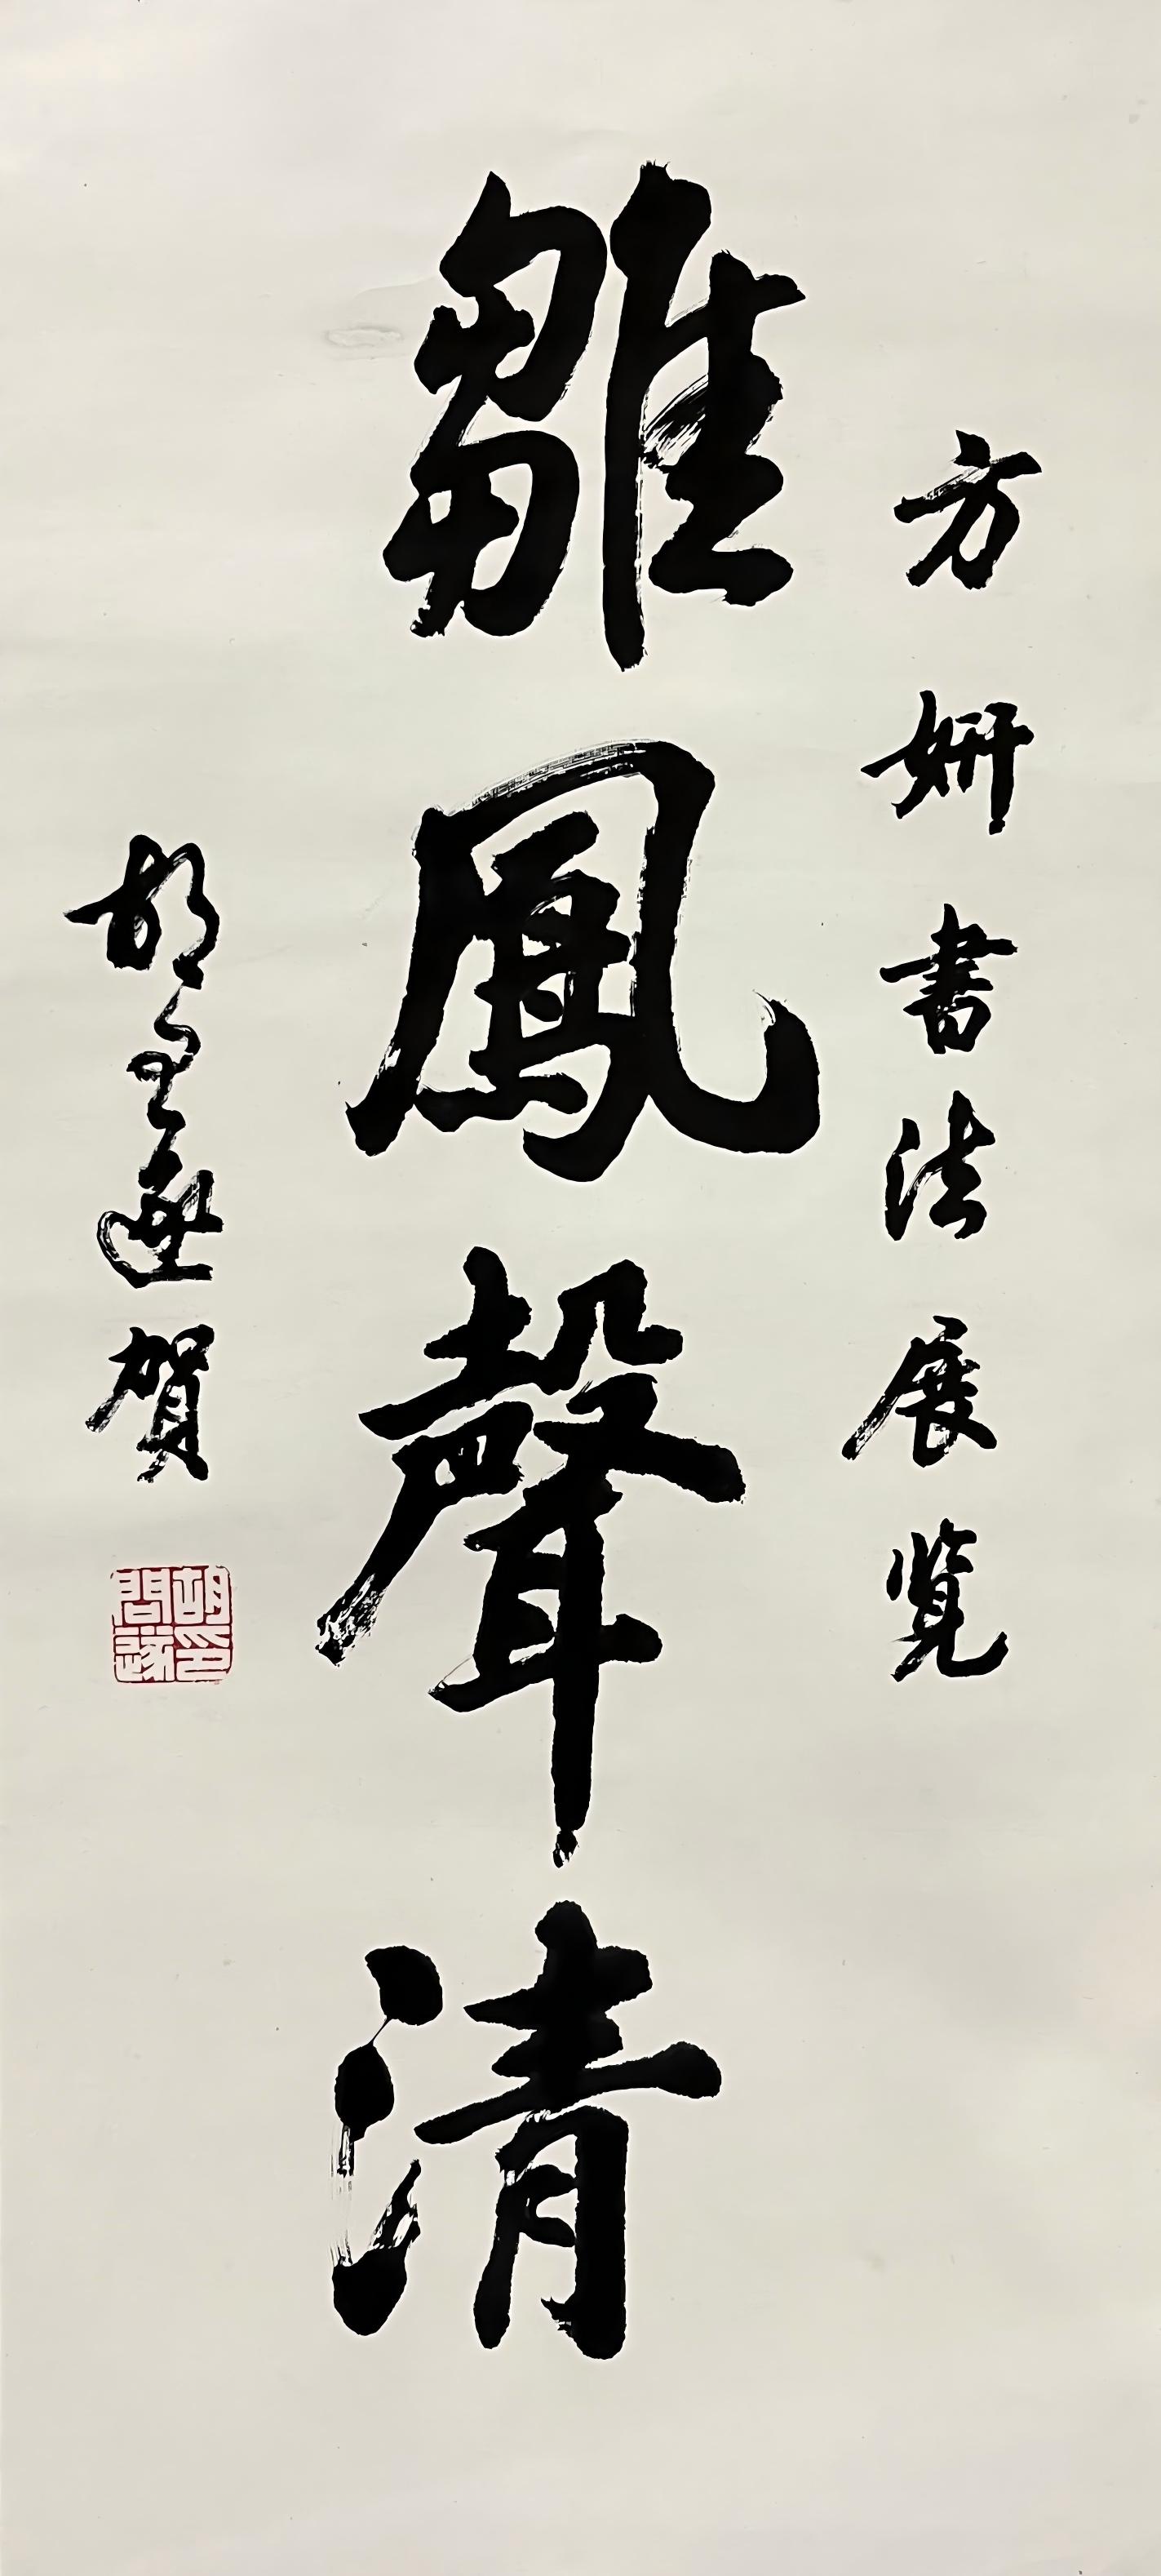 方姍書法展覧
雛鳳聲清
胡問遂賀
胡問遂印